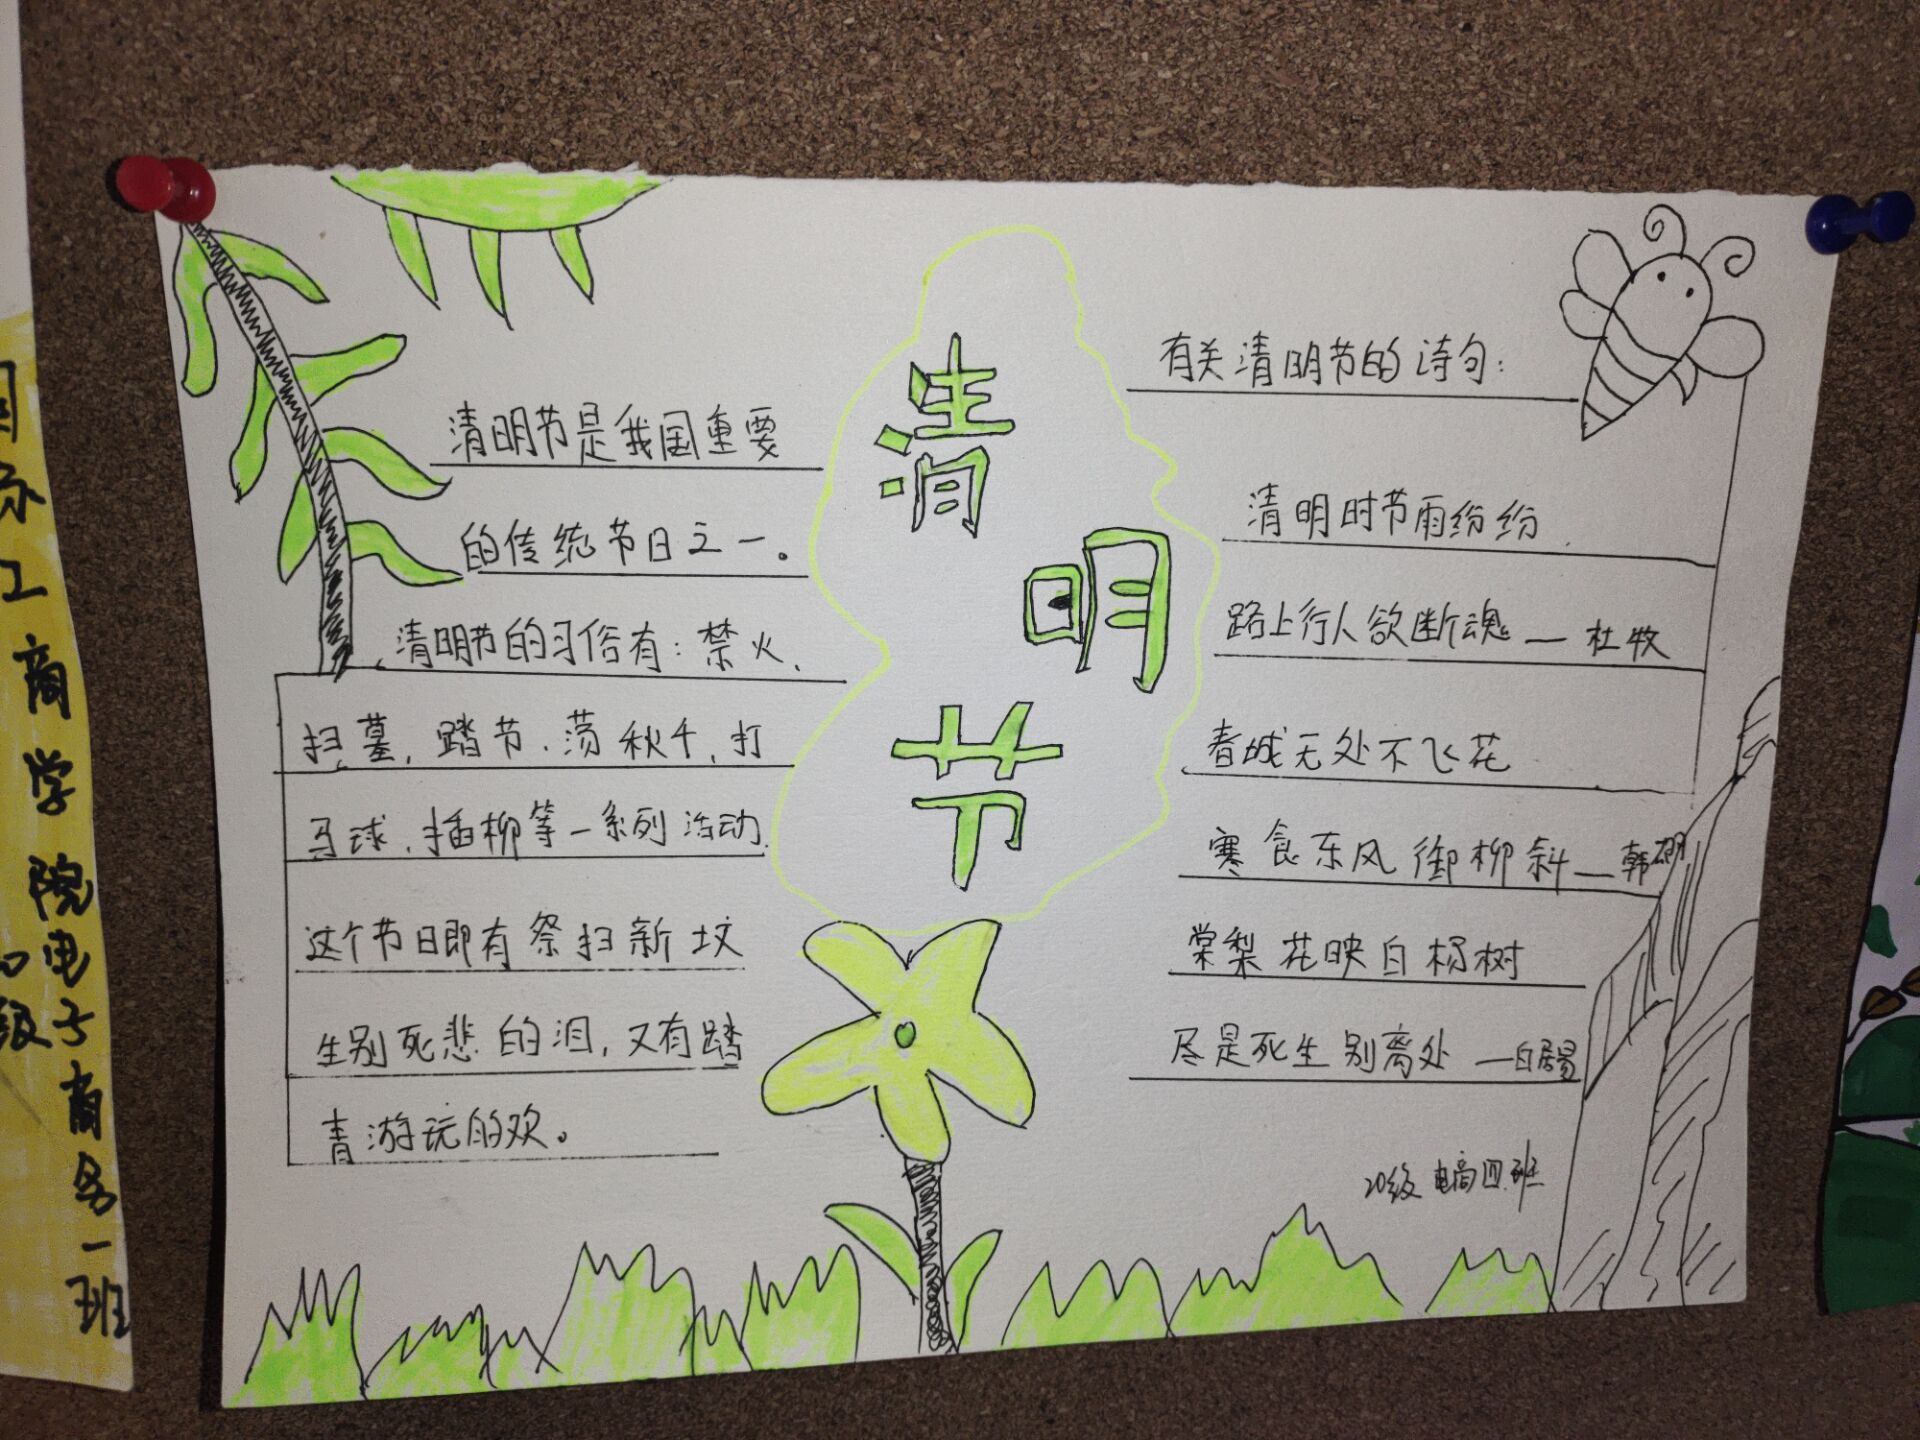 清明节
清明节是我国重要
的传统节日之一。
清明节的习俗有：禁火、
扫墓、踏节、荡秋千、打
马球、插柳等一系列活动
这个节日即有祭扫新坟
生别死悲的泪，又有踏
青游玩的欢。
有关清明节的诗句：
清明时节雨纷纷
路上行人欲断魂——杜牧
春城无处不飞花
寒食东风御柳斜——韩翃
棠梨花映白杨树
尽是死生别离处——白居易
20级电商四班
工商学院电子商务一班
级